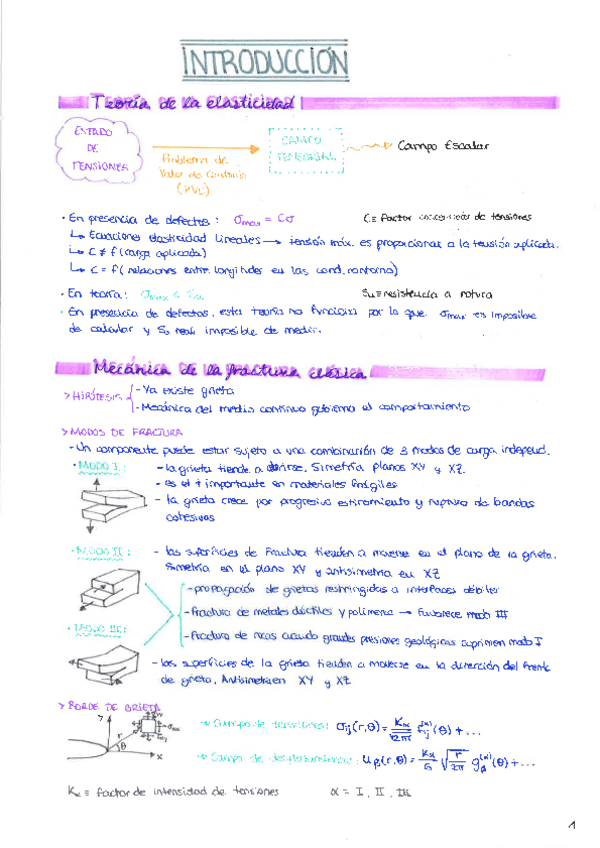 INTRODUCCIÓN
Teoría de la elasticidad
ESTADO DE TENSIONES
Problema de Valor de Contorno (PVC)
CAMPO TENSORIAL
Campo Escalar
· En presencia de defectos: σmax = Cσ C ≡ factor de tensiones
↳ Ecuaciones elasticidad lineales → tensión máx. es proporcional a la tensión aplicada.
↳ C ≠ f(carga aplicada)
↳ C = f(relaciones entre longitudes en las cond. contorno)
· En teoría: Su ≡ resistencia a rotura
· En presencia de defectos, esta teoría no funciona por lo que σmax es imposible
de calcular y Su real imposible de medir.
Mecánica de la fractura clásica
> HIPÓTESIS { - Ya existe grieta
- Mecánica del medio continuo gobierna el comportamiento
> MODOS DE FRACTURA
- Un componente puede estar sujeto a una combinación de 3 modos de carga independ.
· MODO I: - la grieta tiende a abrirse. Simetría planos XY y XZ.
- es el + importante en materiales frágiles
- la grieta crece por progresivo estiramiento y ruptura de bandas
cohesivas
· MODO II: - las superficies de fractura tienden a moverse en el plano de la grieta.
Simetría en el plano XY y antisimetría en XZ
- propagación de grietas restringidas a interfaces débiles
- fractura de metales dúctiles y polímeros → favorece modo III
- fractura de rocas cuando grandes presiones geológicas suprimen modo I
· MODO III:
- las superficies de la grieta tienden a moverse en la dirección del frente
de grieta. Antisimetría en XY y XZ
> BORDE DE GRIETA
y r θ x
→ Campo de tensiones: σij(r,θ) = Kα/√2πr fij(α)(θ) + ...
→ Campo de desplazamientos: uβ(r,θ) = Kα/G √r/2π gβ(α)(θ) + ...
Kα ≡ factor de intensidad de tensiones α = I, II, III
1